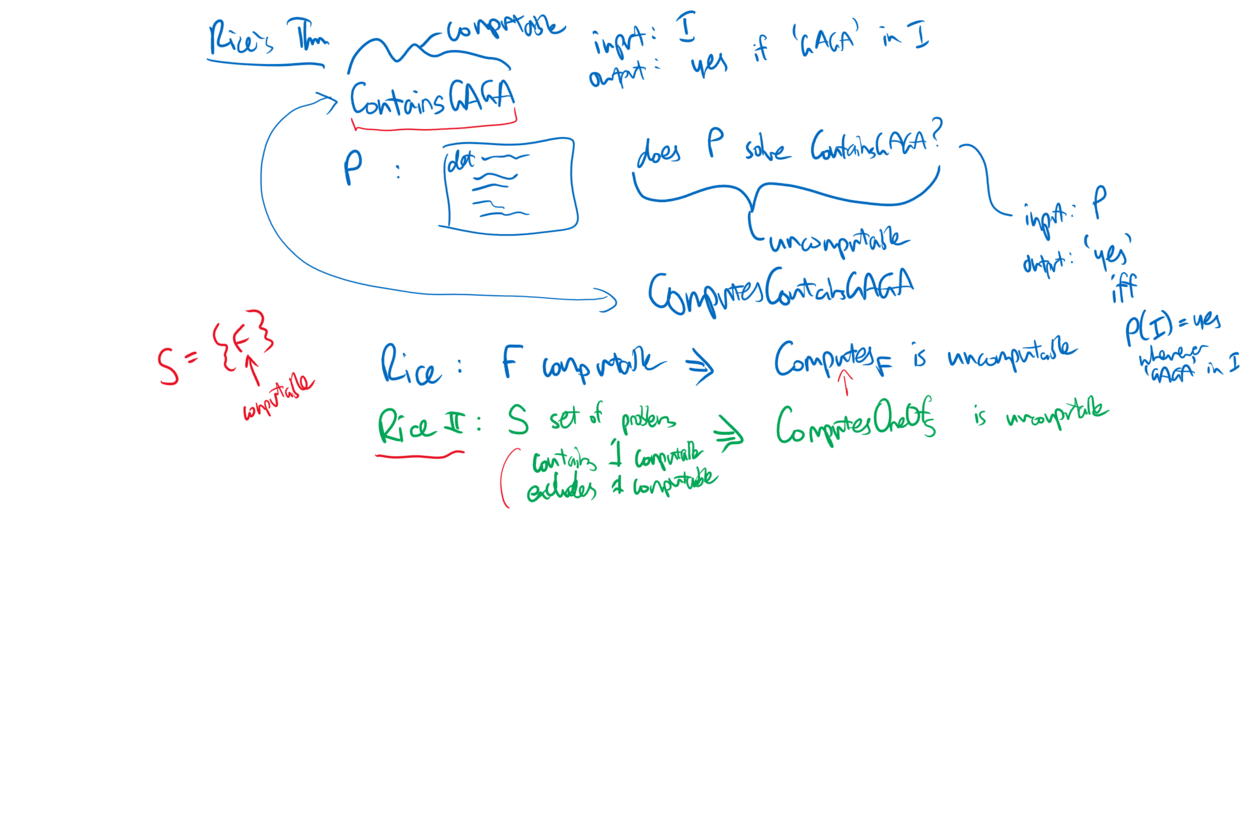 Rice's Thm
computable
input: I
output: yes if 'GAGA' in I
ContainsGAGA
P :
def
does P solve ContainsGAGA?
uncomputable
input: P
output: 'yes'
iff
P(I) = yes
whenever
'GAGA' in I
ComputesContainsGAGA
S = {F}
computable
Rice : F computable ⇒ Computes_F is uncomputable
Rice II : S set of problems ⇒ ComputesOneOf_S is uncomputable
contains 1 computable
excludes 1 computable